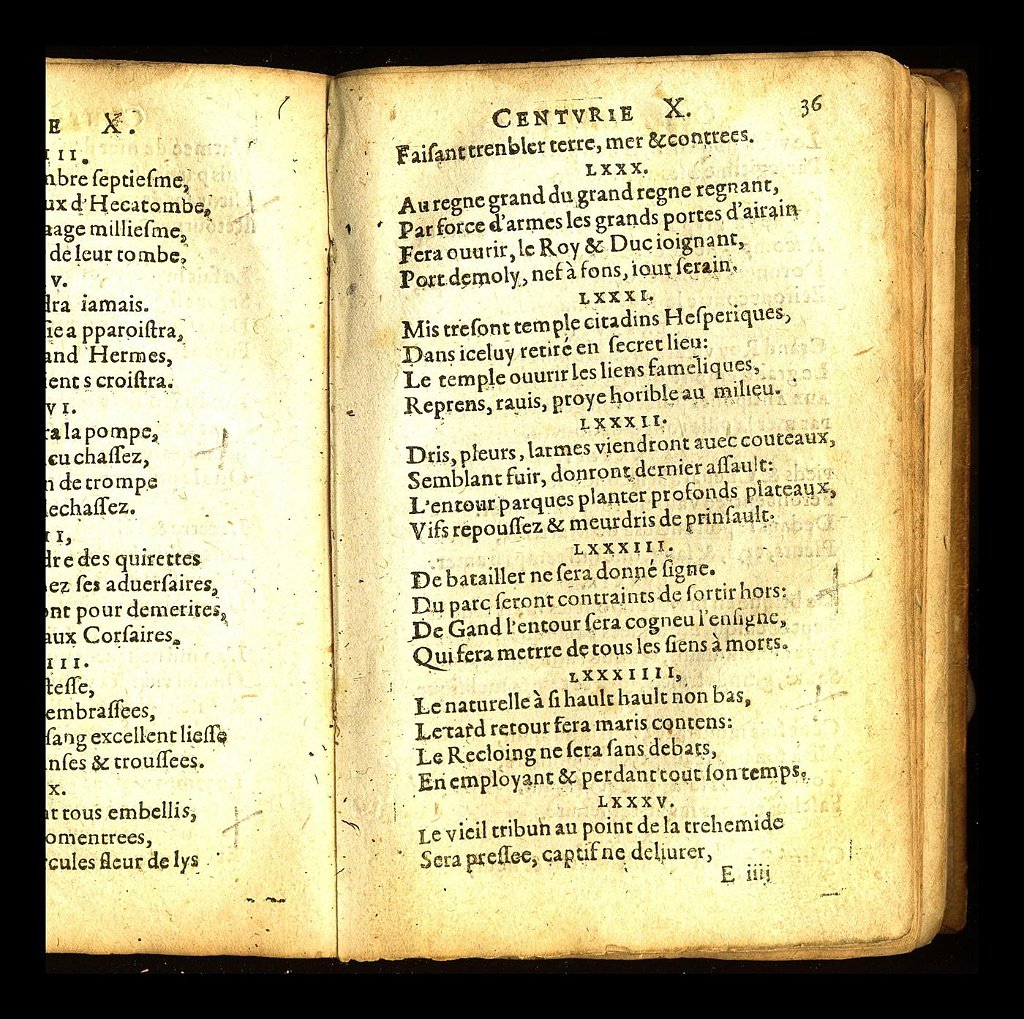 E X.
III.
mbre septiesme,
ux d'Hecatombe,
age milliesme,
de leur tombe,
V.
dra iamais.
ie a pparoistra,
and Hermes,
ient s croistra.
VI.
ra la pompe,
cu chassez,
n de trompe
echassez.
II,
dre des quirettes
ez ses aduersaires,
ont pour demerites,
aux Corsaires,
III.
tesse,
embrassees,
sang excellent liesse
nses & troussees.
X.
t tous embellis,
omentrees,
cules fleur de lys
CENTVRIE X. 36
Faiſant trenbler terre, mer & contrees.
LXXX.
Au regne grand du grand regne regnant,
Par force d'armes les grands portes d'airain
Fera ouurir, le Roy & Duc ioignant,
Port demoly, nef à fons, iour ſerain.
LXXXI.
Mis treſont temple citadins Heſperiques,
Dans iceluy retiré en ſecret lieu:
Le temple ouurir les liens fameliques,
Reprens, rauis, proye horrible au milieu.
LXXXII.
Dris, pleurs, larmes viendront auec couteaux,
Semblant fuir, donront dernier aſſault:
L'entour parques planter profonds plateaux,
Vifs repouſſez & meurdris de prinſault.
LXXXIII.
De batailler ne ſera donné ſigne.
Du parc ſeront contraints de ſortir hors:
De Gand l'entour ſera cogneu l'enſigne,
Qui fera metrre de tous les ſiens à morts.
LXXXIIII,
Le naturelle à ſi hault hault non bas,
Le tard retour fera maris contens:
Le Recloing ne ſera ſans debats,
En employant & perdant tout ſon temps.
LXXXV.
Le vieil tribun au point de la trehemide
Sera preſſee, captif ne deliurer,
E iiij